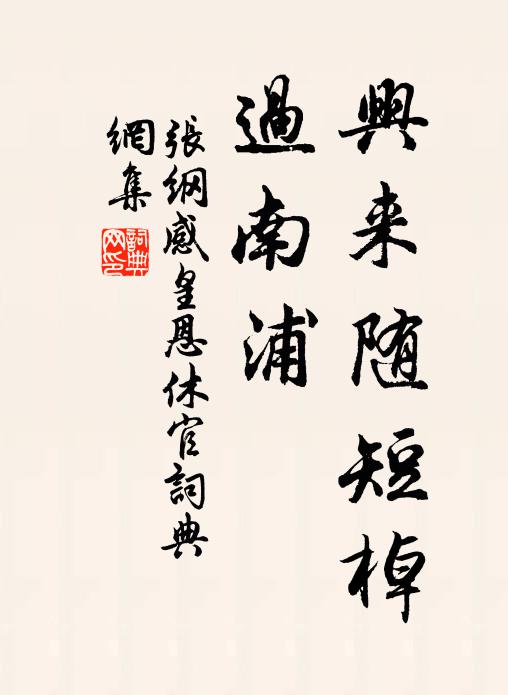 興来随短棹
過南浦
張綱感皇恩休官詞典
網集
詞典網印